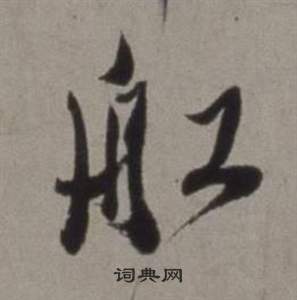 舡
词典网